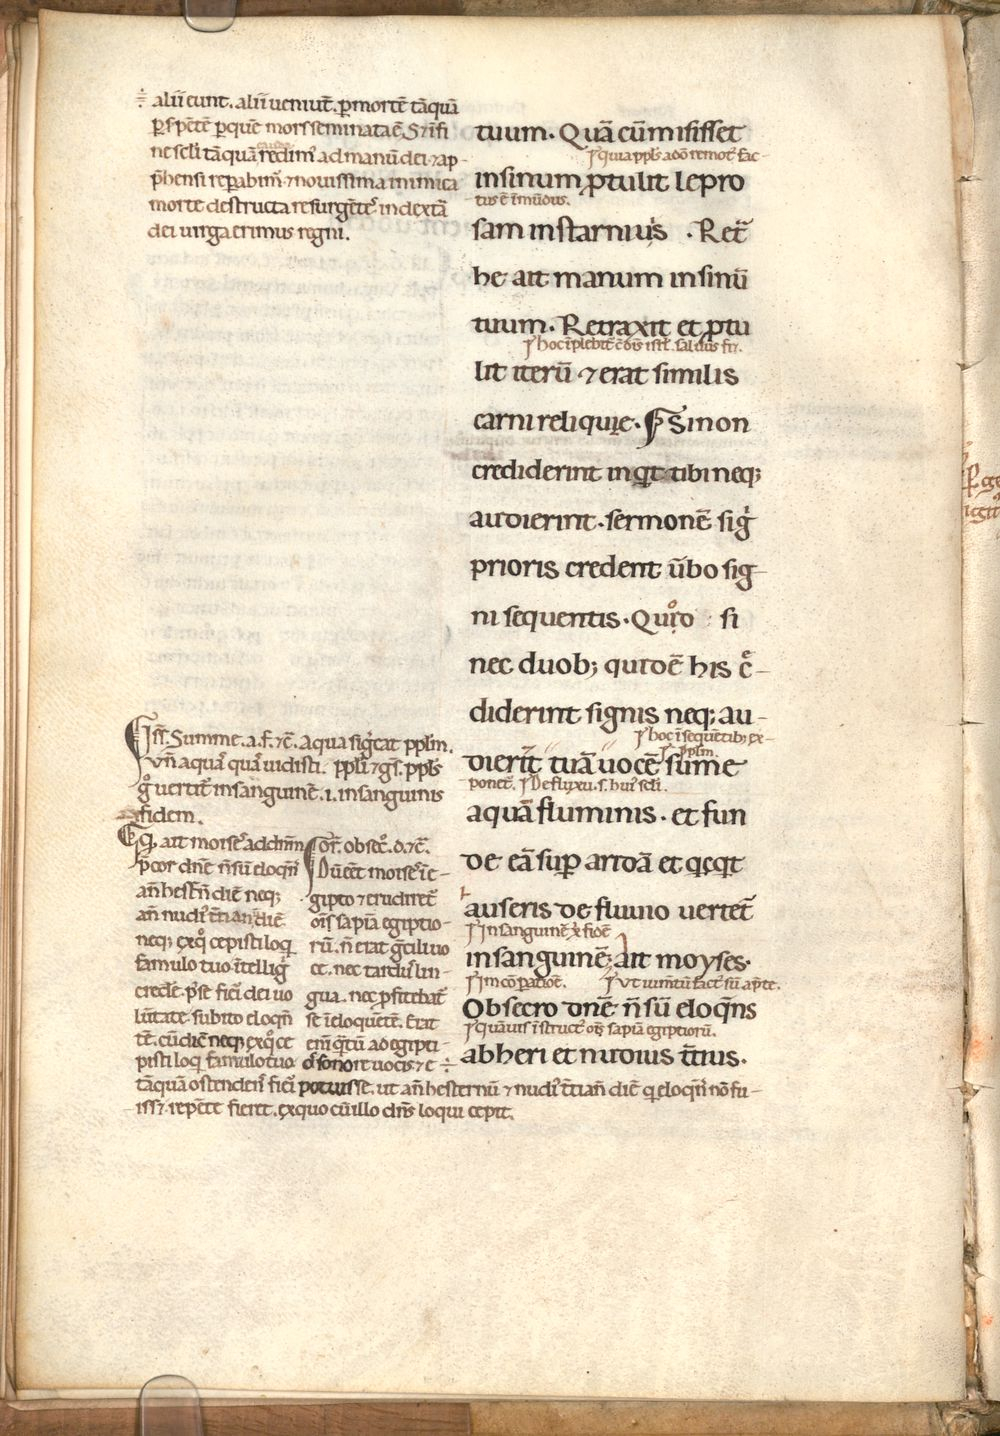 alii eunt. alii ueniūt. ꝑ mortē tāquā
ꝑ sꝑētē ꝑ quē mors seminata ē. S; ī fi
ne sc̄li tāquā redim᷒ ad manū dei ⁊ ap-
p̄hensi reꝑabim᷒. ⁊ nouissima inimica
morte destructa resurgētes in dextā
dei uirga erimus regni.
tuum. Quā cūm misisset
quia ppl̄s a dō remot᷒ fac-
in sinum ꝓtulit lepro
tus ē īmūdus.
sam instar niuis. Ret̄
he ait manum in sinū
tuum. Retraxit et ꝓtu
lit iterū ⁊ erat similis
carni reliquie. Si non
crediderint inqt tibi neq;
audierint sermonē sig
prioris credent ūbo sig-
ni sequentis. Quod si
nec duob; quidē his c-
diderint signis neq; au-
hoc ī sequētib; ex-
ppl̄m.
dierīt tuā uocē sume
ponet᷒. De fluxu .s. hui᷒ sc̄li.
aquā fluminis. et fun
de eā suꝑ aridā et qcqt
auseris de fluuio uertet᷒
in sanguinē .i. fidē
in sanguinē. Ait moyses.
in cōꝑatiōe. ut iumtū fact᷒ sū ap te.
Obsecro dn̄e. n̄ sū eloqns
quāuis īstruct᷒ oī sapia egiptiorū.
ab heri et nudius t̄tius.
Iss. Summe. a. f. ⁊c̄. aqua sigcat ppl̄m.
vn̄ aqua quā uidisti. ppl̄i ⁊ gs. ppl̄s
g° uertit᷒ in sanguinē .i. in sanguinis
fidem.
ait moises ad dn̄m
p̄cor dn̄e n̄ sū eloqn̄
an̄ hestn̄ diē neq;
an̄ nudi᷒ t̄tian̄ diē
neq; ex q° cepisti loq
famulo tuo. ītellig
crede. p̄se fici dei uo
lūtate subito eloqn̄
tē. cū dic̄ neq; ex q° ce
pisti loq famulo tuo.
or̄. obsec᷒. d. ⁊c̄.
Dū eet᷒ moises ī e-
gipto ⁊ erudiret᷒
oīs sapia egiptio-
rū. n̄ erat gcili uo
ce. nec tardus lin-
gua. nec ꝓfitebat᷒
se īeloquētē. Erat
eni qtū ad egipti-
os sonore uocis ⁊ e
tāquā ostendens fici potuisse. ut an̄ hesternū ⁊ nudi᷒ t̄tian̄ diē q eloqn̄s nō fu-
iss; repēte fieret. ex quo cū illo dn̄s loqui cepit.